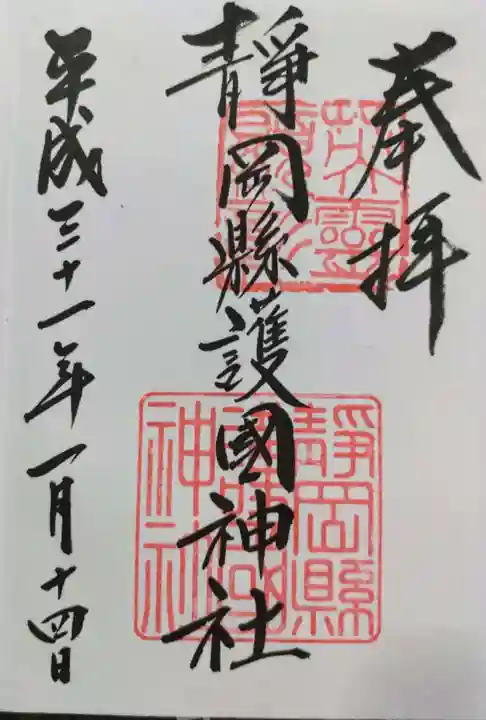 奉拝
靜岡縣護國神社
平成三十一年一月十四日
靜岡縣
護國
神社